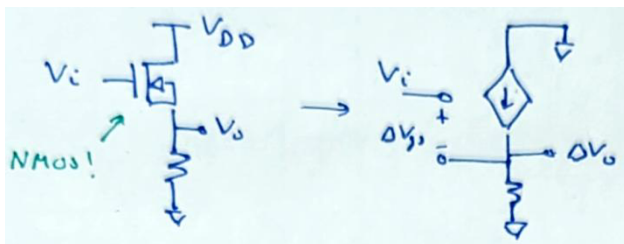 V_DD
Vi
Vo
NMOS!
Vi
+
ΔVgs
-
ΔVo